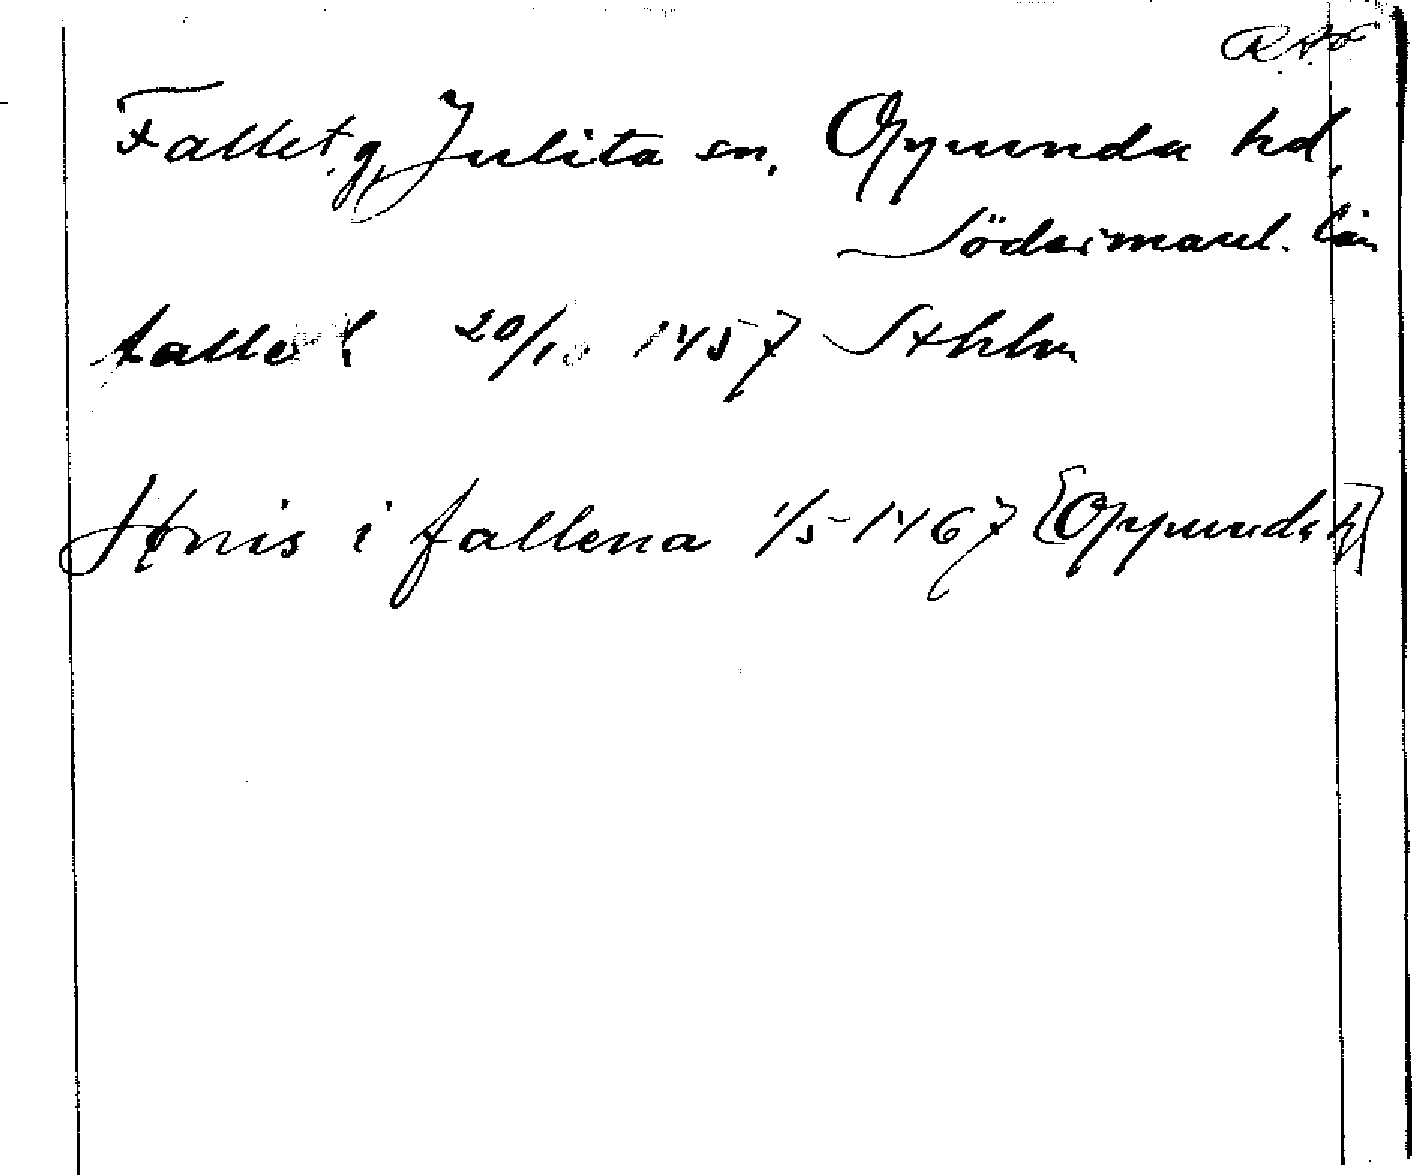 RAP
Fallet, g, Julita sn, Oppunda hd,
Södermanl. län
20/10 1457 Sthlm
i fallena 1/5 1467 [Oppunda h]